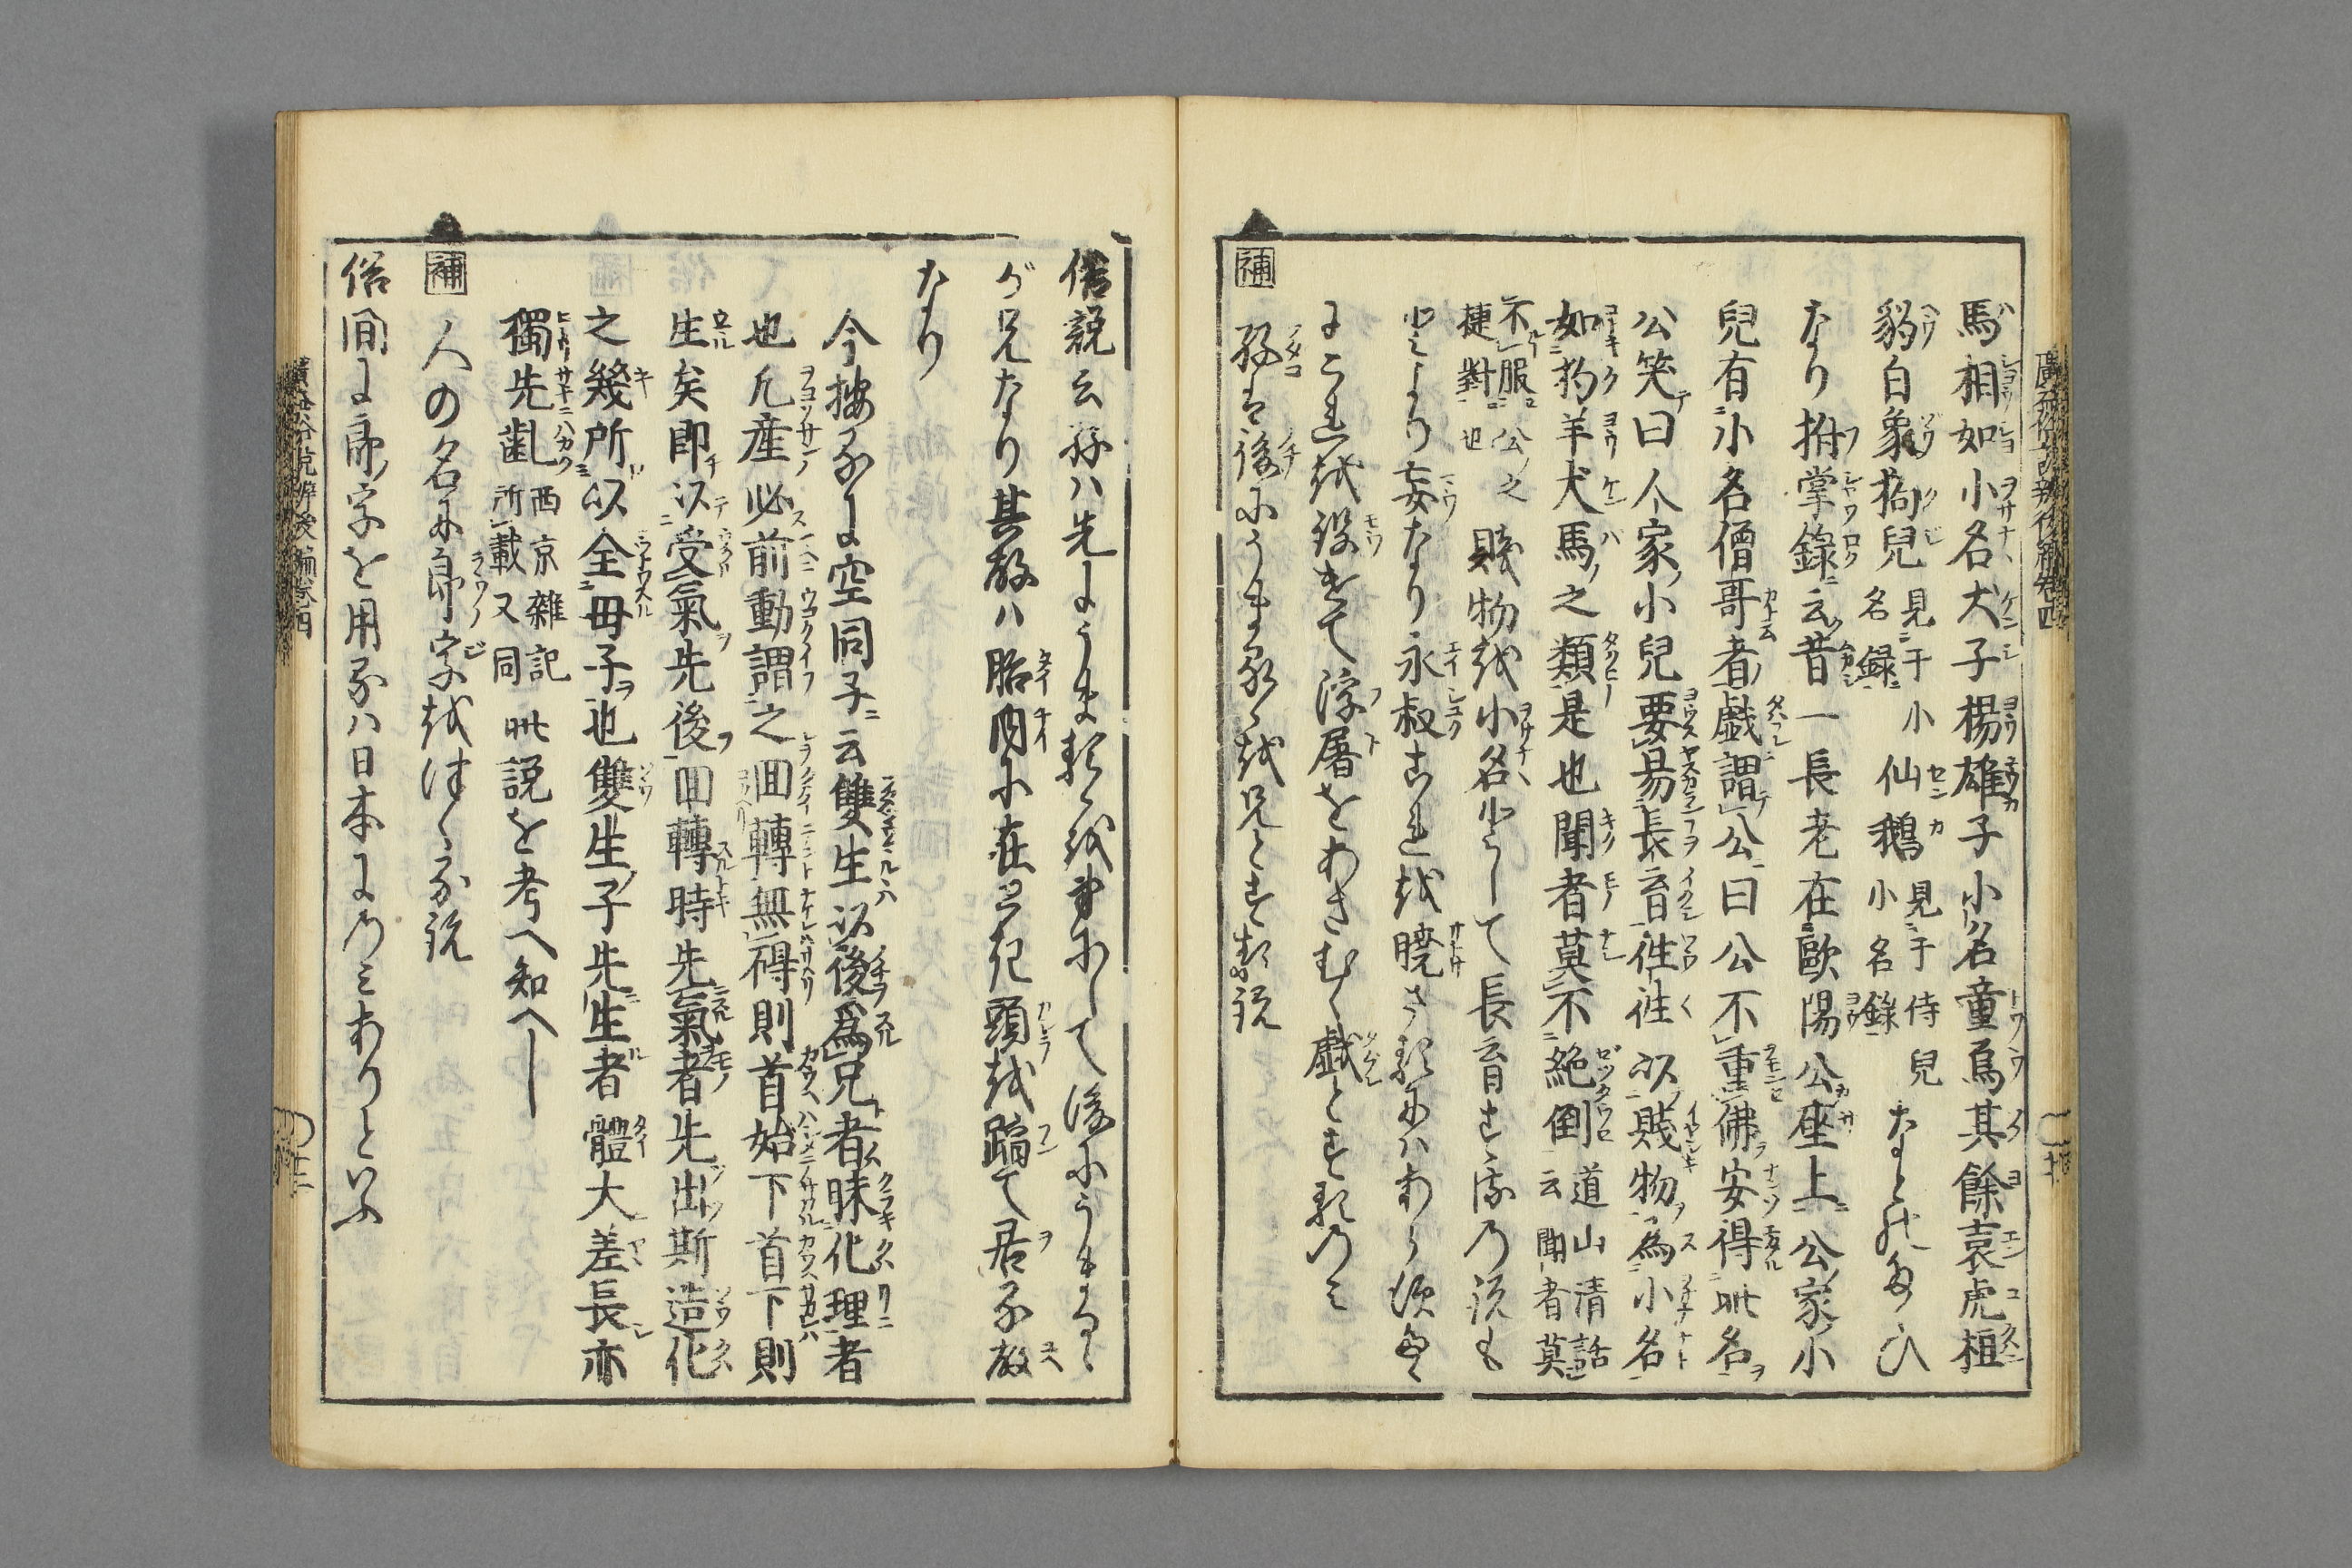 馬相如小名犬子楊雄子小名童烏其餘袁虎桓
豹白象狗兒見于小名録仙鵝見于侍兒小名錄なとのたくひ
なり拊掌錄云昔一長老在歐陽公座上公家小
兒有小名僧哥者戯謂公曰公不重佛安得此名
公笑曰人家小兒要易長育徃徃以賤物為小名
如狗羊犬馬之類是也聞者莫不絶倒道山清話云聞者莫
不服公之捷對也賤物を小名として長育する乃説も
とより妄なり永叔これを暁さゝるにはあらす
にこれを設けて浮屠をあさむく戯とする乃ミ
孿は後にうまるゝを兄とする説
俗説云孿ハ先にうまるゝを弟にして後にうまるゝ
が兄なり其故ハ胎内に在る花頭を踏て居る故
なり
今按るに空同子云雙生以後為兄者昧化理者
也凡産必前動謂之回轉無得則首始下首下則
生矣即以受氣先後回轉時先氣者先出斯造化
之幾所以全毋子也雙生子先生者體大差長亦
獨先齔西京雜記所載又同此説を考へ知へし
補
人の名に郎字をつくる説
俗間に郎字を用るハ日本に乃ミありといふ